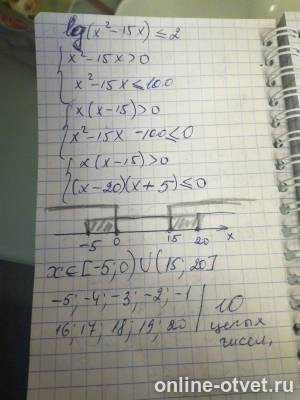 lg(x²-15x) ≤ 2
{ x²-15x>0
x²-15x ≤ 100
{ x(x-15)>0
x²-15x -100≤0
{ x(x-15)>0
(x-20)(x+5)≤0
-5 0 15 20 x
x∈[-5;0)∪(15;20]
-5; -4; -3; -2; -1
16; 17; 18; 19; 20
10
целых
чисел,
online-otvet.ru